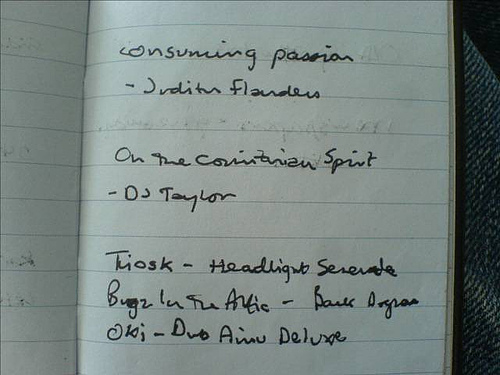 consuming passion
- Judith Flanders
On the Corinthian Spirit
- DJ Taylor
Kiosk - Headlight Serenade
Bugz In The Attic - Back Dogan
Oki - Dub Ainu Deluxe